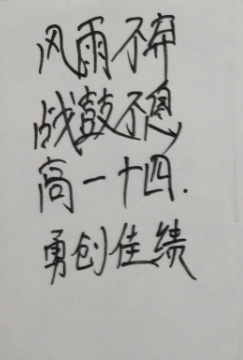 风雨不弃
战鼓不息
高一十四.
勇创佳绩